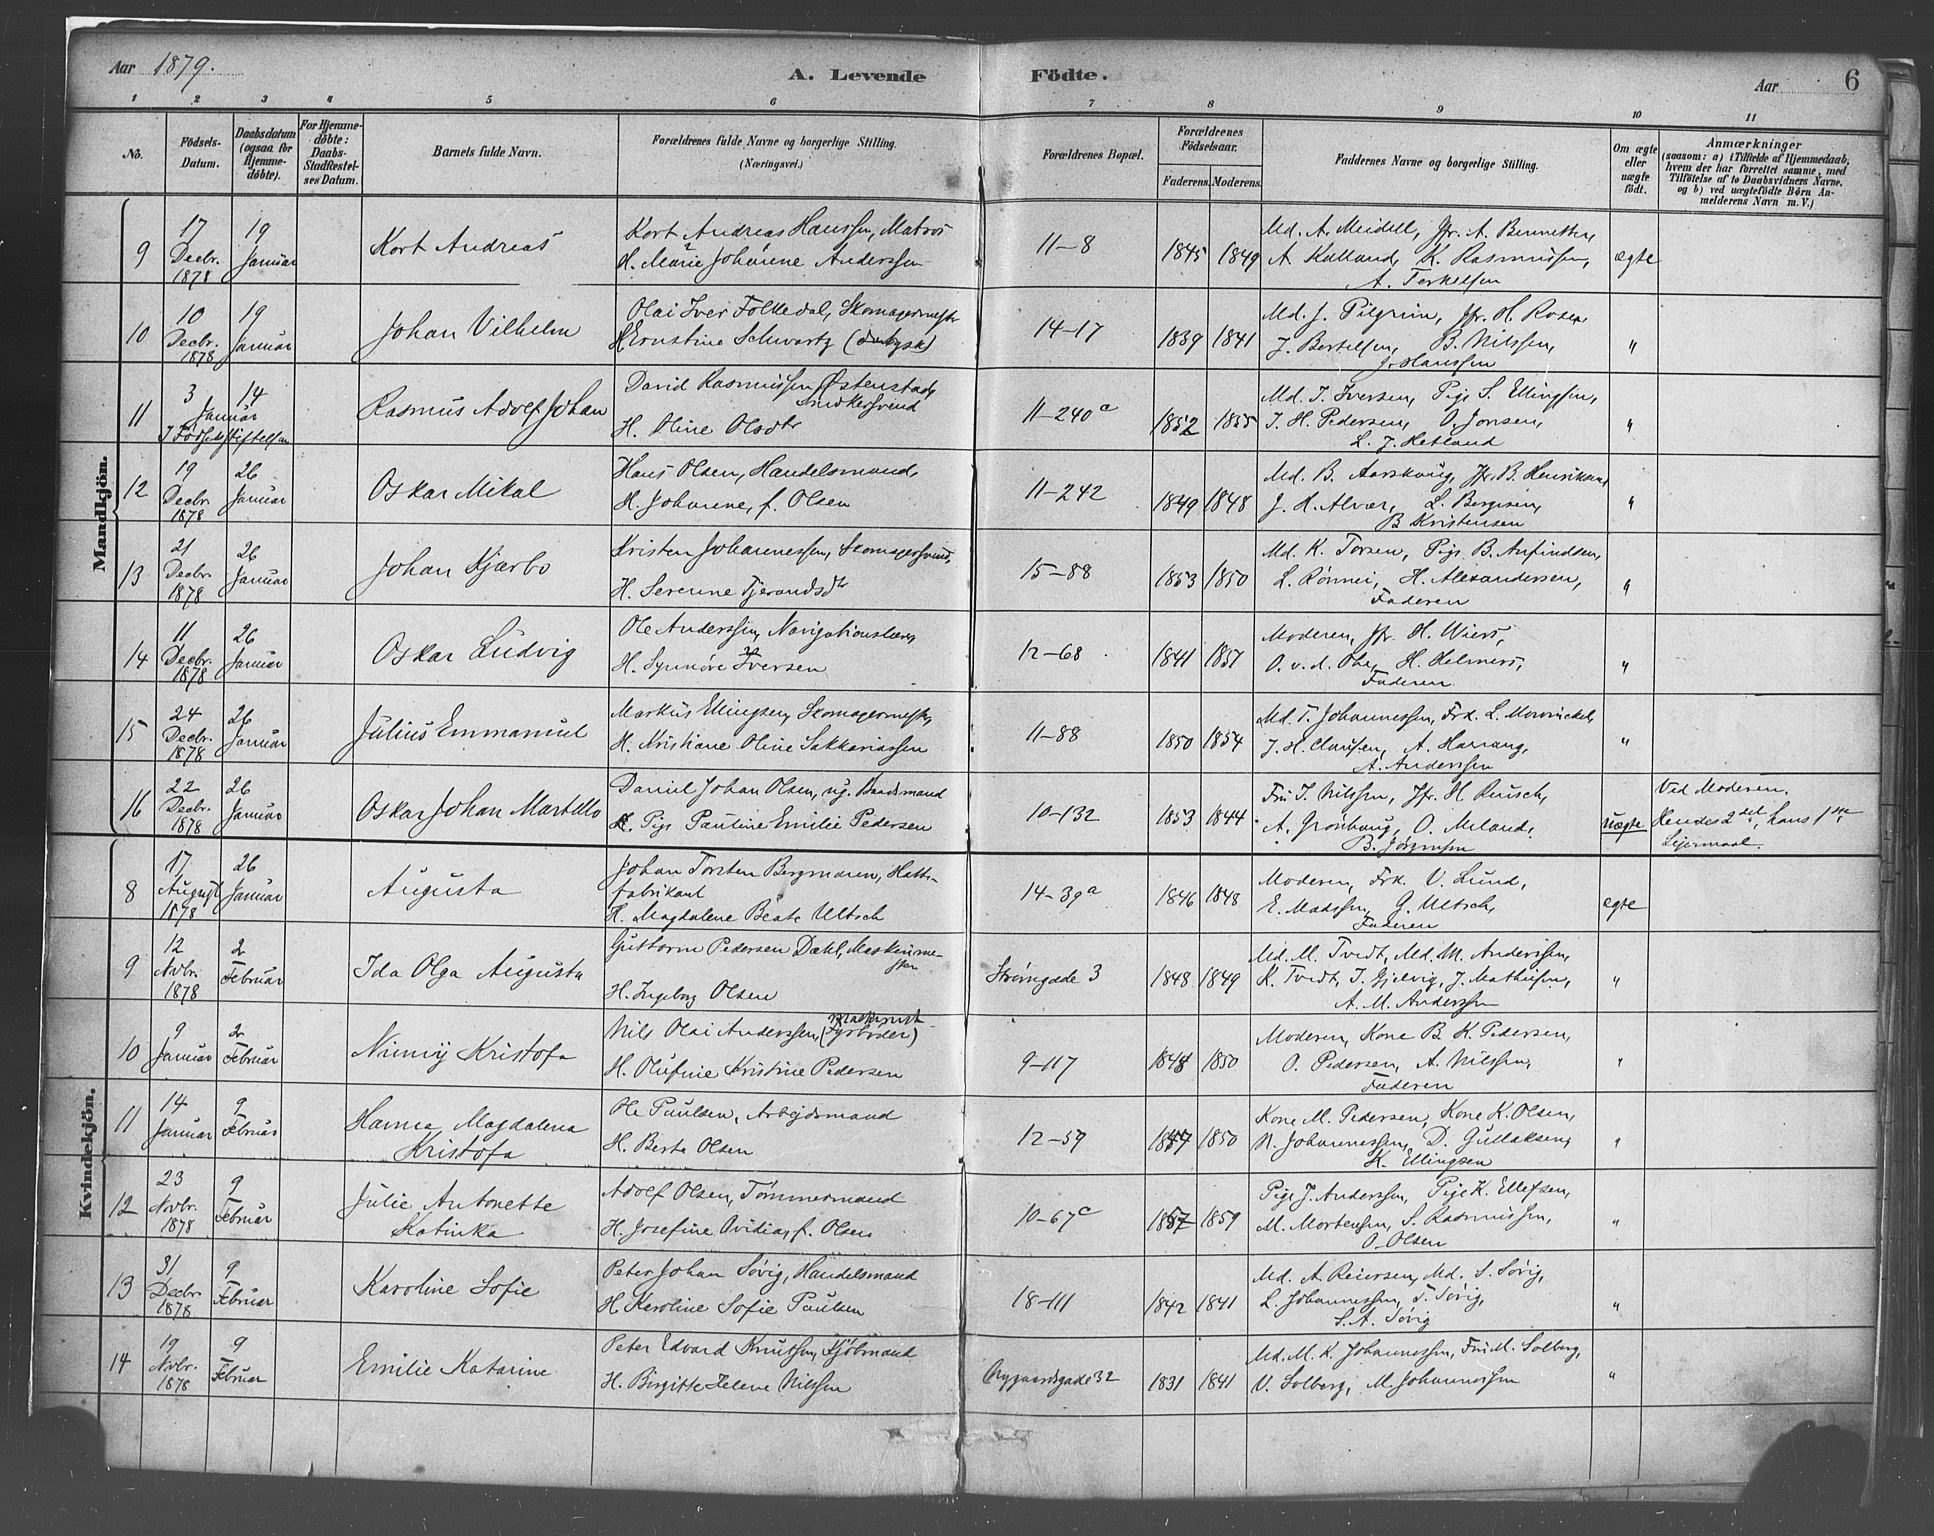 Aar 1879.
A. Levende Födte.
Aar
6
1 2 3 4 5 6 7 8 9 10 11
No.
Födsels-Datum.
Daabsdatum (ogsaa for Hjemme-döbte).
For Hjemme-döbte: Daabs-Stadfæstel-ses Datum.
Barnets fulde Navn.
Forældrenes fulde Navne og borgerlige Stilling. (Næringsvei.)
Forældrenes Bopæl.
Forældrenes Födselsaar.
Faderens. Moderens.
Faddernes Navne og borgerlige Stilling.
Om ægte eller uægte födt.
Anmærkninger
(saasom: a) i Tilfælde af Hjemmedaab, hvem der har forrettet samme, med Tilföielse af to Daabsvidners Navne, og b) ved uægtefödte Börn An-melderens Navn m. V.)
Mandkjön.
9 17 Decbr. 1878 19 Januar Kort Andreas
Kort Andreas Hanssen, Matros
H. Marie Johanne Anderssen
11-8 1845 1849
Md. A. Meidell, Jfr. A. Bennetter,
A. Kalland, K. Rasmussen,
A. Terkelsen
ægte
10 10 Decbr. 1878 19 Januar Johan Vilhelm
Olai Iver Folkedal, Skomagermester
H Ernstine Schwartz
14-17 1839 1841
Md. J. Pilgrim, Jfr. H. Rosen
J. Bertelsen, B. Nilssen,
J. Hanssen
"
11 3 Januar 14
I Fødselsstiftelsen
Rasmus Adolf Johan
David Rasmussen Østenstad,
Snedkersvend
H. Oline Olsdtr
11-240a 1852 1855
Md. I. Iversen, Pige S. Ellingsen,
I. H. Pedersen, O. Jonsen,
L. J. Hetland
"
12 19 Decbr. 1878 26 Januar Oskar Mikal
Hans Olsen, Handelsmand,
H. Johanne, f. Olsen
11-242 1849 1848
Md. B. Aarskoug, Jfr. B. Henriksen,
J. H. Alvær, L. Bergesen,
B Kristensen
"
13 21 Decbr. 1878 26 Januar Johan Kjærbo
Kristen Johannessen, Skomagersvend,
H. Serenne Tjerandsdtr
15-88 1853 1850
Md. K. Torsen, Pige B. Anfindsen,
L. Rönnei, H. Alexandersen,
Faderen
"
14 11 Decbr. 1878 26 Januar Oskar Ludvig
Ole Anderssen, Navigationslærer,
H. Synnöve Iversen
12-68 1841 1857
Moderen, Jfr. H. Wiers,
O. v. d. Ohe, H. Helmers,
Faderen
"
15 24 Decbr. 1878 26 Januar Julius Emmanuel
Markus Ellingsen, Skomagermester,
H. Kristiane Oline Sakkariassen
11-88 1850 1854
Md. T. Johannessen, Frk. L. Mowinckel,
J. H. Claussen, A. Harrang,
A. Anderssen
"
16 22 Decbr. 1878 26 Januar Oskar Johan Martello
Daniel Johan Olsen, ug. Baadsmand
Pige Pauline Emilie Pedersen
10-132 1853 1844
Fru I. Nilssen, Jfr. H Reusch,
A. Grönhaug, O. Meland,
B. Jörgensen
uægte
Ved Moderen.
Hendes 2det, hans 1ste
Leiermaal.
Kvindekjön.
8 17 August 1878 26 Januar Augusta
Johan Torsten Bergmann, Hatte-
fabrikant
H. Magdalene Beate Ultsch
14-39a 1846 1848
Moderen, Frk. V. Lund,
E. Madssen, G. Ultsch,
Faderen
egte
9 12 Novbr. 1878 2 Februar Ida Olga Augusta
Guttorm Pedersen Dahl, Maskinme-
ster
H. Ingeborg Olsen
Strömgade 3 1848 1849
Md. M. Tvedt, Md. M. Anderssen,
K. Tvedt, I. Gjelvig, J. Mathisen,
A. M. Anderssen
"
10 9 Januar 2 Februar Nimy Kristofa
Nils Olai Anderssen, (Fyrböder)
Maskinist
H. Olufine Kristine Pedersen
9-117 1848 1850
Moderen, Kone B. K. Pedersen,
O. Pedersen, A. Nilssen,
Faderen
"
11 14 Januar 9 Februar Hanna Magdalena
Kristofa
Ole Paulsen, Arbejdsmand
H. Berta Olsen
12-59 1850
Kone M. Pedersen, Kone K. Olsen,
N. Johannessen, D. Gullaksen,
K. Ellingsen
"
12 23 Novbr. 1878 9 Februar Julie Antonette
Katinka
Adolf Olsen, Tömmermand
H. Josefine Ovidia, f. Olsen
10-67c 1857 1859
Pige J. Anderssen, Pige K. Ellefsen,
M. Mortensen, S. Rasmussen,
O. Olsen
"
13 31 Decbr 1878 9 Februar Karoline Sofie
Peter Johan Søvig, Handelsmand
H Karoline Sofie Paulsen
18-111 1842 1841
Md. A Reiersen, Md. S. Søvig,
L. Johannessen, T. Søvig,
S. A. Søvig
"
14 19 Novbr. 1878 9 Februar Emilie Katarine
Peter Edvard Knutsen, Sjömand
H. Birgitte Helene Nilssen
Nygaardsgade 32 1831 1841
Md. M. K. Johannessen, Fru M. Solberg,
V. Solberg, M. Johannessen
"